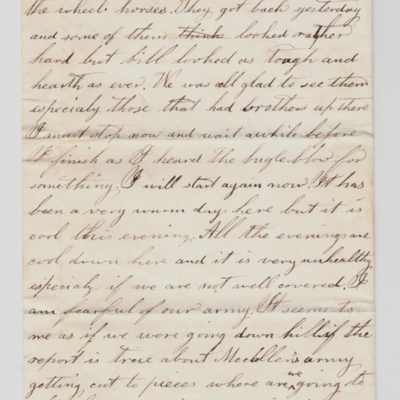 the wheel horses. They got back yesterday
and some of them think looked rather
hard but bill looked as tough and
hearth as ever. We was all glad to see them
especialy those that had brothers up there
I must stop now and wait awhile before
I finish as I heard the bugle blow for
something. I will start again now. It has
been a very warm day here but it is
cool this evening. All the evenings are
cool down here and it is very unhealthy
especialy if we are not well covered. I
am fearful of our army. It seems to
me as if we were going down hill if the
report is true about army
getting cut to pieces where are we going to